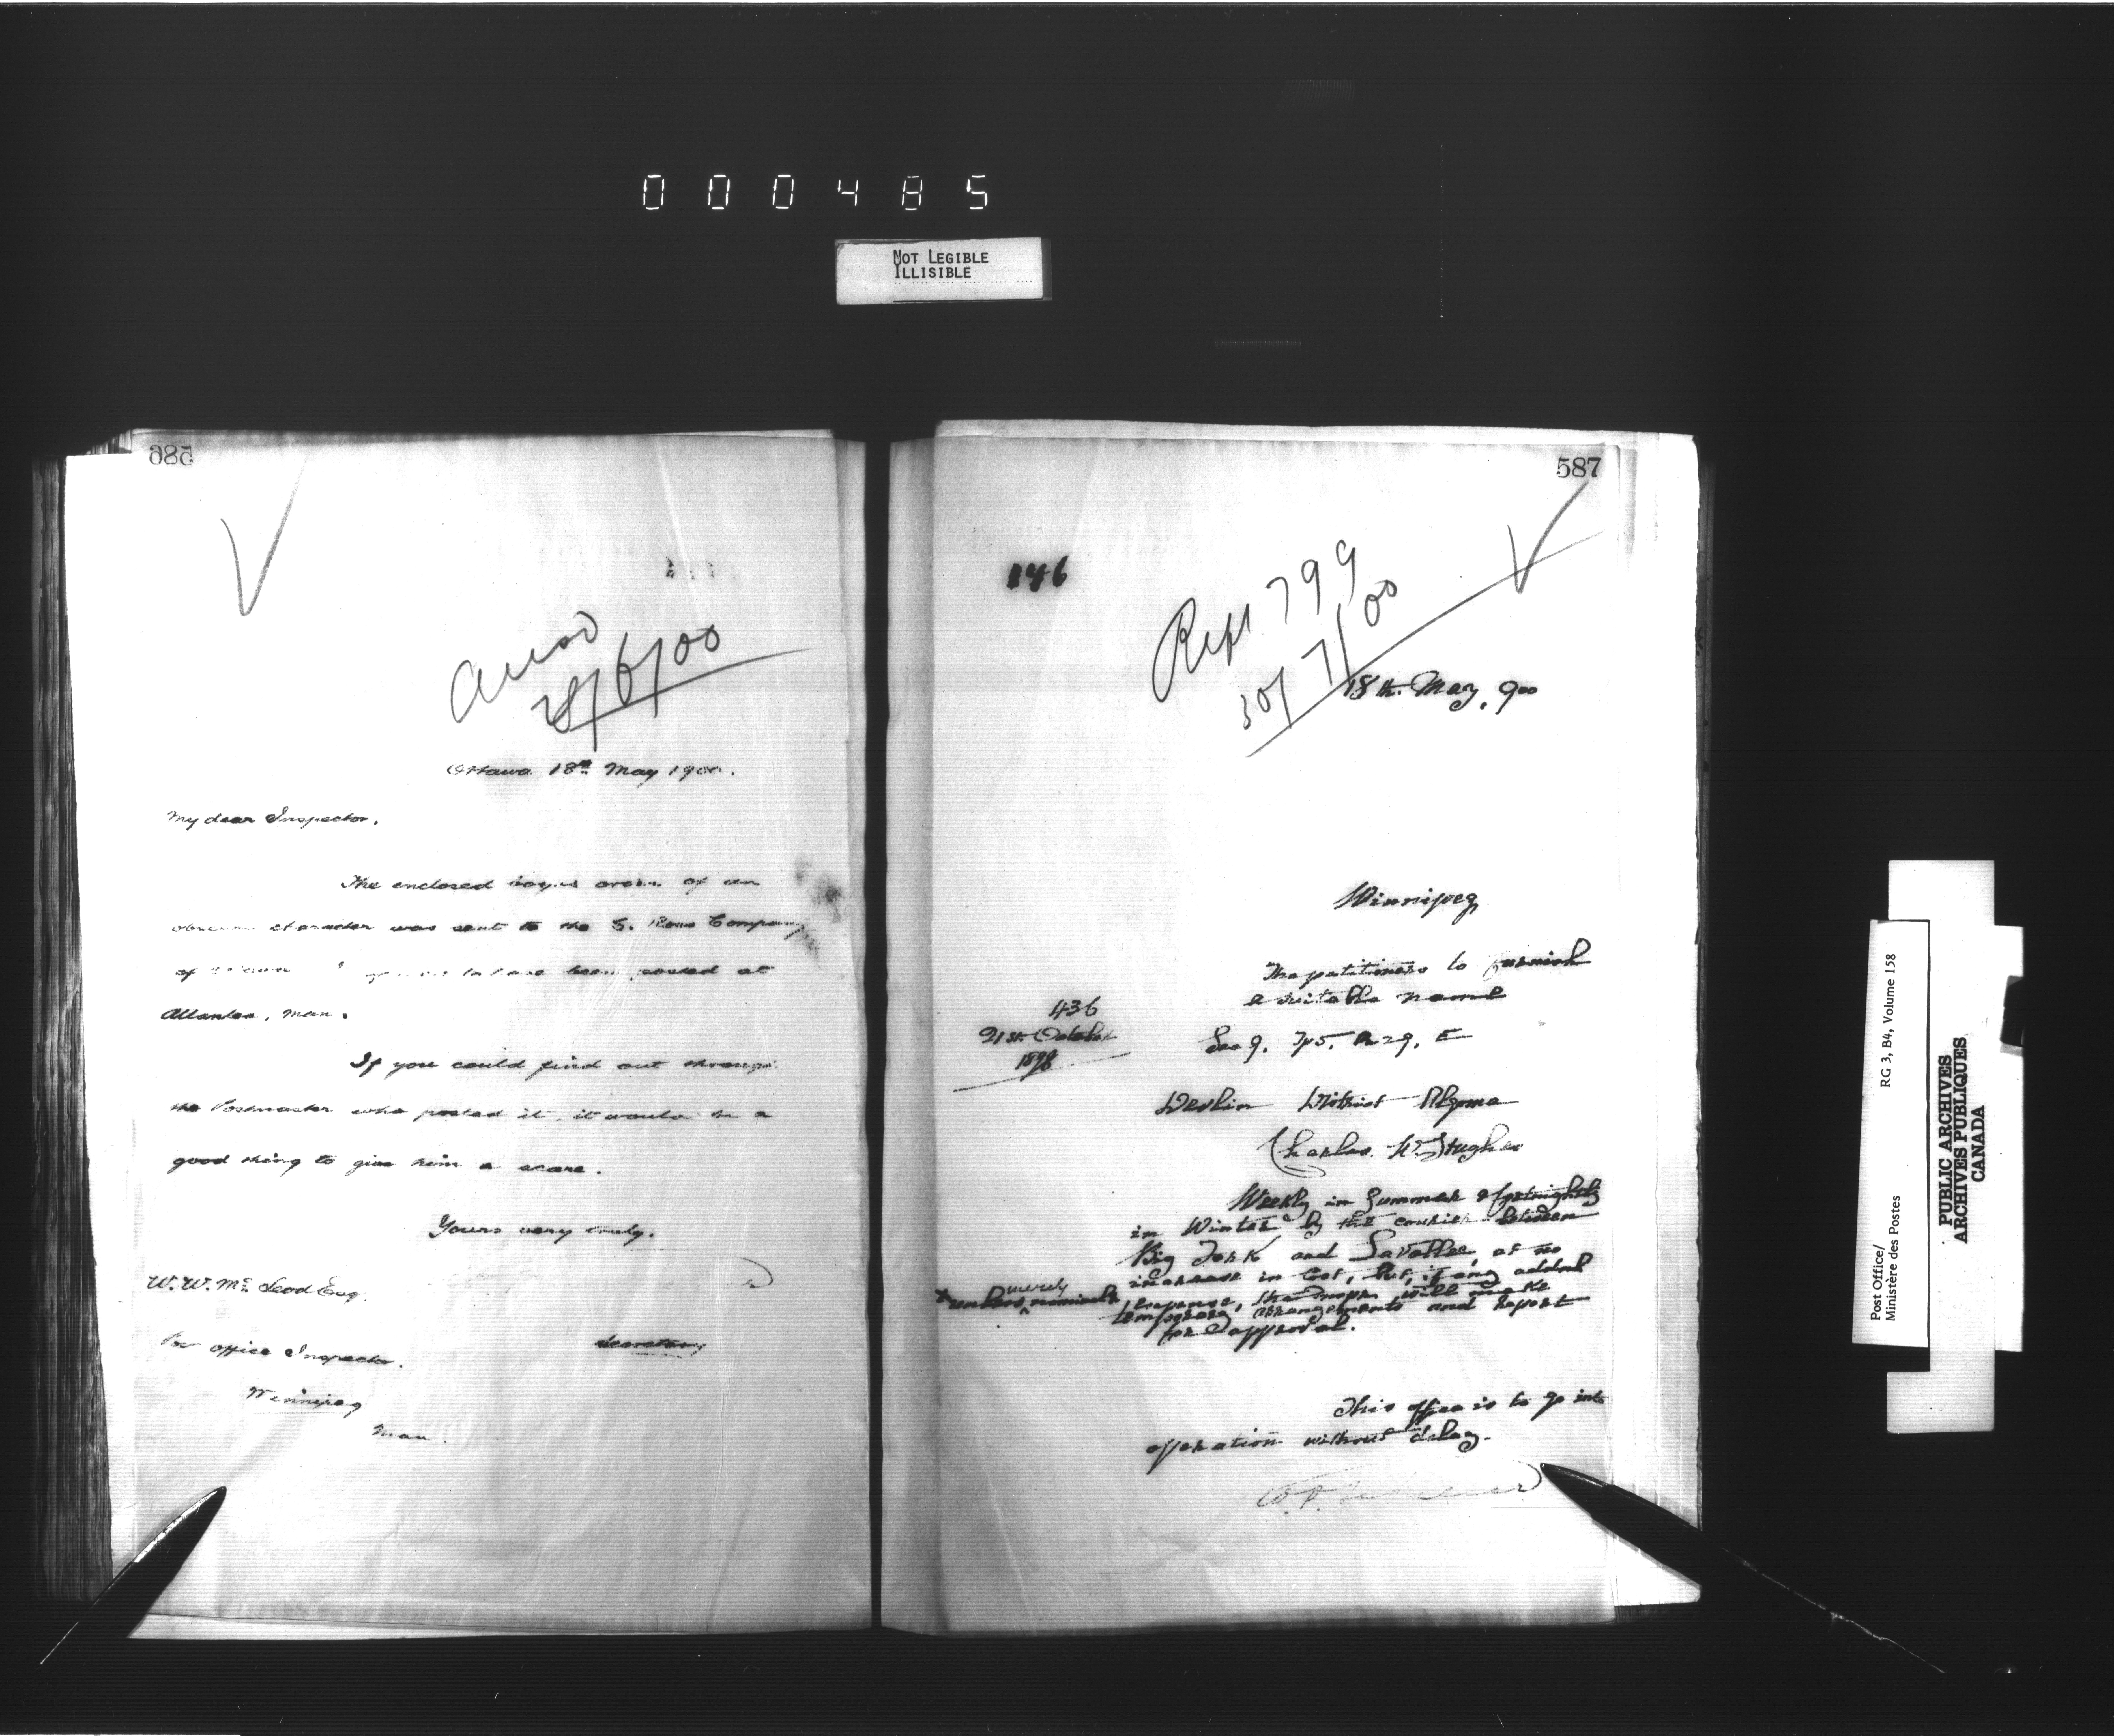 000485
NOT LEGIBLE
ILLISIBLE
586
28/6/00
Ottawa 18th May 1900.
My dear Inspector,
The enclosed bogus order of an
character was sent to the G. Rose Company
of to have been posted at
Man.
If you could find out through
the Postmaster who posted it, it would be a
good thing to give him a scare.
Yours very truly.
W. W. McLeod Esq.
Secretary
P.O. office Inspector.
Winnipeg
Man.
587
146
Rept 799
30/7/00
18th. May, 900
Winnipeg
The petitioners to furnish
a suitable name
436
21st. October
1898
Sec 9. Tp 5. R 29. E
Devlin District Algoma
Charles W. Hughes
Weekly in Summer & fortnightly
in Winter by the courier between
Big Fork and Lavallee, at no
increase in Cost, but, if any addnl
expense, the Inspr will make
x unless merely nominal
temporary arrangements and report
for approval.
This office is to go into
operation without delay.
Post Office/
Ministère des Postes
RG 3, B4, Volume 158
PUBLIC ARCHIVES
ARCHIVES PUBLIQUES
CANADA